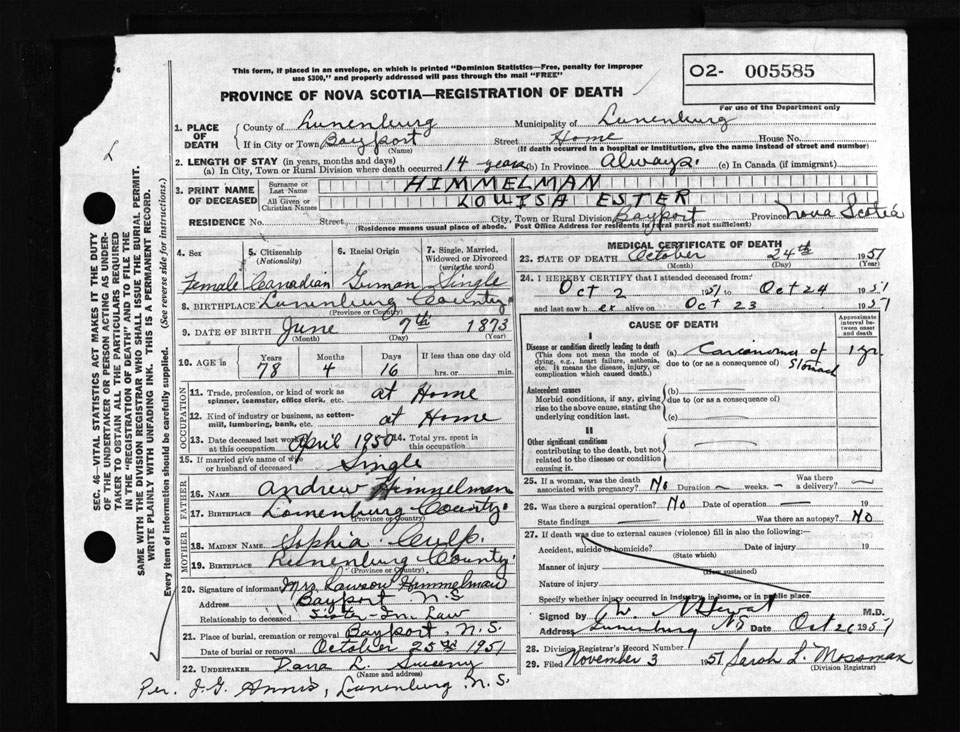 This form, if placed in an envelope, on which is printed "Dominion Statistics—Free, penalty for improper use $300," and properly addressed will pass through the mail "FREE"
O2- 005585
For use of the Department only
PROVINCE OF NOVA SCOTIA—REGISTRATION OF DEATH
SEC. 46—VITAL STATISTICS ACT MAKES IT THE DUTY OF THE UNDERTAKER OR PERSON ACTING AS UNDERTAKER TO OBTAIN ALL THE PARTICULARS REQUIRED IN THE "REGISTRATION OF DEATH" AND TO FILE THE SAME WITH THE DIVISION REGISTRAR WHO SHALL ISSUE THE BURIAL PERMIT.
WRITE PLAINLY WITH UNFADING INK. THIS IS A PERMANENT RECORD.
Every item of information should be carefully supplied. (See reverse side for instructions.)
1. PLACE OF DEATH County of Lunenburg Municipality of Lunenburg
If in City or Town Bayport (Name) Street Home House No.
(If death occurred in a hospital or institution, give the name instead of street and number)
2. LENGTH OF STAY (in years, months and days)
(a) In City, Town or Rural Division where death occurred 14 years (b) In Province Always. (c) In Canada (if immigrant)
3. PRINT NAME OF DECEASED Surname or Last Name HIMMELMAN
All Given or Christian Names LOUISA ESTER
RESIDENCE No. Street City, Town or Rural Division Bayport Province Nova Scotia
(Residence means usual place of abode. Post Office Address for residents in rural parts not sufficient)
4. Sex 5. Citizenship (Nationality) 6. Racial Origin 7. Single, Married, Widowed or Divorced (write the word)
Female Canadian German Single
8. BIRTHPLACE Lunenburg County
(Province or Country)
9. DATE OF BIRTH June 7th 1873
(Month) (Day) (Year)
10. AGE in Years 78 Months 4 Days 16 If less than one day old hrs. or min.
OCCUPATION
11. Trade, profession, or kind of work as spinner, teamster, office clerk, etc. at Home
12. Kind of industry or business, as cotton-mill, lumbering, bank, etc. at Home
13. Date deceased last worked at this occupation April 1950 14. Total yrs. spent in this occupation
15. If married give name of wife or husband of deceased Single
FATHER
16. NAME Andrew Himmelman
17. BIRTHPLACE Lunenburg County
(Province or Country)
MOTHER
18. MAIDEN NAME Sophia Culp.
19. BIRTHPLACE Lunenburg County
(Province or Country)
20. Signature of informant Mrs Lawson Himmelman
Address Bayport N.S
Relationship to deceased Sister-In-Law
21. Place of burial, cremation or removal Bayport, N.S.
Date of burial or removal October 25th 1951
22. UNDERTAKER Dana L. Sweeny
(Name and address)
Per. J.G. Annis, Lunenburg N.S.
MEDICAL CERTIFICATE OF DEATH
23. DATE OF DEATH October 24th 1951
(Month) (Day) (Year)
24. I HEREBY CERTIFY that I attended deceased from:
Oct 2 1951 to Oct 24 1951
and last saw her alive on Oct 23 1951
CAUSE OF DEATH
Approximate interval between onset and death
I
Disease or condition directly leading to death
(This does not mean the mode of dying, e.g., heart failure, asthenia, etc. It means the disease, injury, or complication which caused death.)
(a) Carcinoma of Stomach 1 yr.
due to (or as a consequence of)
Antecedent causes
Morbid conditions, if any, giving rise to the above cause, stating the underlying condition last.
(b)
due to (or as a consequence of)
(c)
II
Other significant conditions contributing to the death, but not related to the disease or condition causing it.
25. If a woman, was the death associated with pregnancy? No Duration — weeks. Was there a delivery? —
26. Was there a surgical operation? No Date of operation — 19
State findings Was there an autopsy? No
27. If death was due to external causes (violence) fill in also the following:—
Accident, suicide or homicide? (State which) Date of injury 19
Manner of injury (How sustained)
Nature of injury
Specify whether injury occurred in Industry, in home, or in public place.
Signed by M.D.
Address Lunenburg NS Date Oct 26 1951
28. Division Registrar's Record Number
29. Filed November 3 1951 Sarah L. Mossman
(Division Registrar)